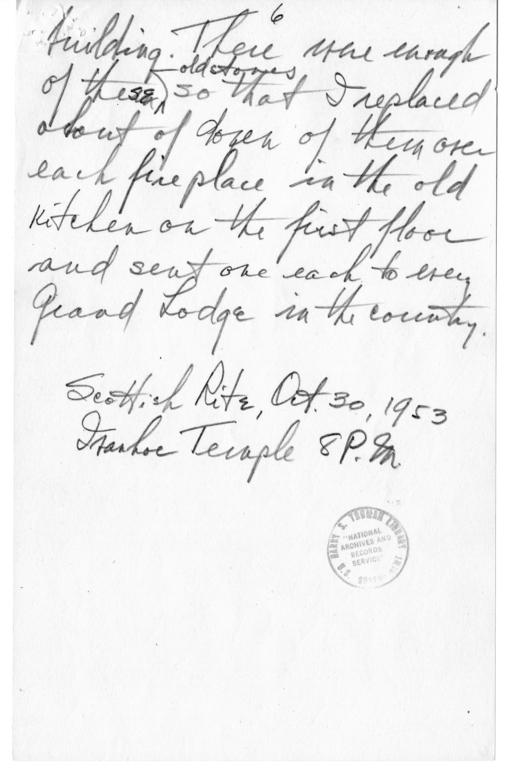 6
building. There were enough
of these old stones so that I replaced
about of dozen of them over
each fireplace in the old
kitchen on the first floor
and sent one each to every
Grand Lodge in the country.
Scottish Rite, Oct. 30, 1953
Ivanhoe Temple 8 P.M.
HARRY S. TRUMAN LIBRARY
"NATIONAL
ARCHIVES AND
RECORDS
SERVICE"